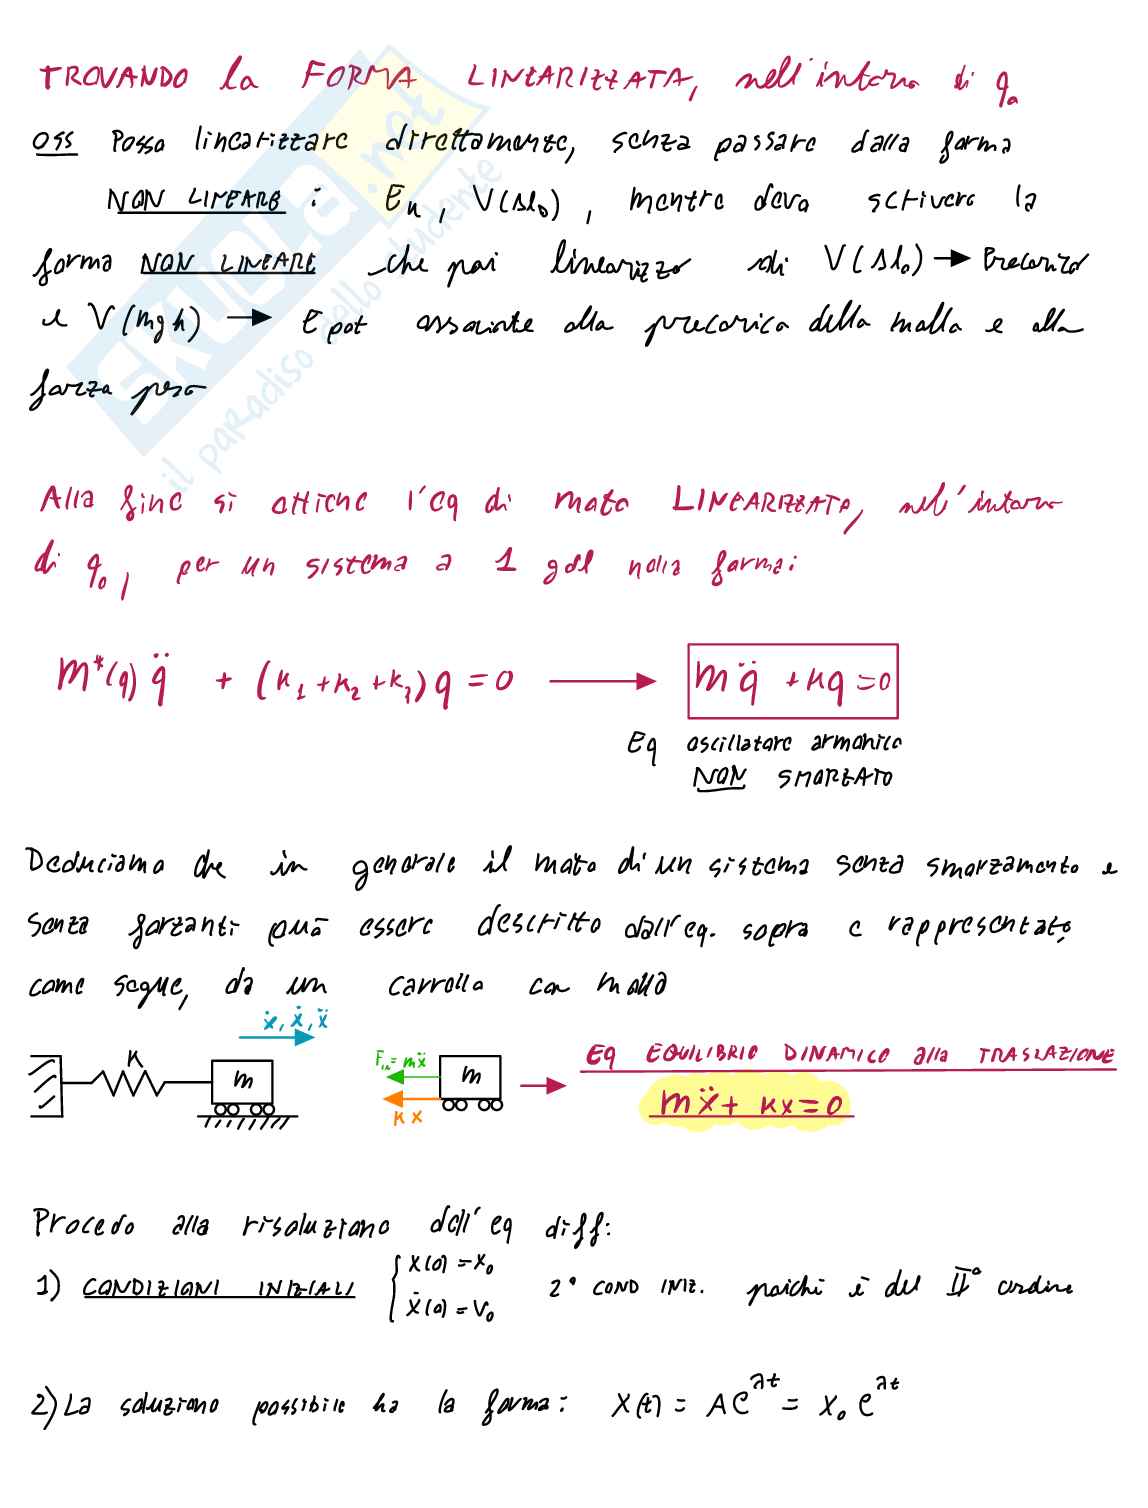 TROVANDO la FORMA LINEARIZZATA, nell'intorno di q₀
OSS Posso linearizzare direttamente, senza passare dalla forma
NON LINEARE : Eₖ, V(Δl₀), mentre devo scrivere la
forma NON LINEARE che poi linearizzo di V(Δl₀) → Precarico
e V(mgh) → Epot associate alla precarica della molla e alla
forza peso
Alla fine si ottiene l'eq di moto LINEARIZZATA, nell'intorno
di q₀, per un sistema a 1 gdl nella forma:
m*(q) q̈ + (k₁+k₂+k₃) q = 0 → mq̈ + kq = 0
Eq oscillatore armonico
NON SMORZATO
Deduciamo che in generale il moto di un sistema senza smorzamento e
senza forzanti può essere descritto dall'eq. sopra e rappresentato,
come segue, da un carrello con molla
ẍ, ẋ, ẍ
k m
Fᵢₙ = mẍ
m
kx
EQ EQUILIBRIO DINAMICO alla TRASLAZIONE
mẍ + kx = 0
Procedo alla risoluzione dell'eq diff:
1) CONDIZIONI INIZIALI { x(0) = x₀
ẋ(0) = v₀
2° COND INIZ. poichè è del II° ordine
2) La soluzione possibile ha la forma: x(t) = Ae^λt = x₀ e^λt
SKUOLA.net
il paradiso dello studente